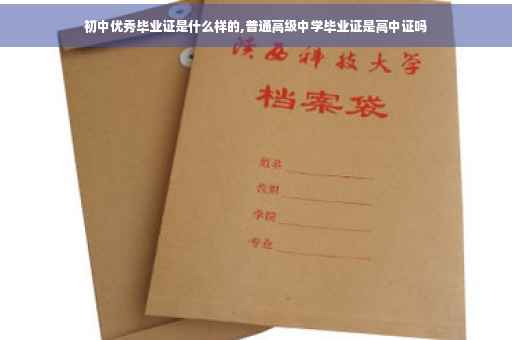 初中优秀毕业证是什么样的,普通高级中学毕业证是高中证吗
陕西科技大学
档案袋
姓名
学院
专业